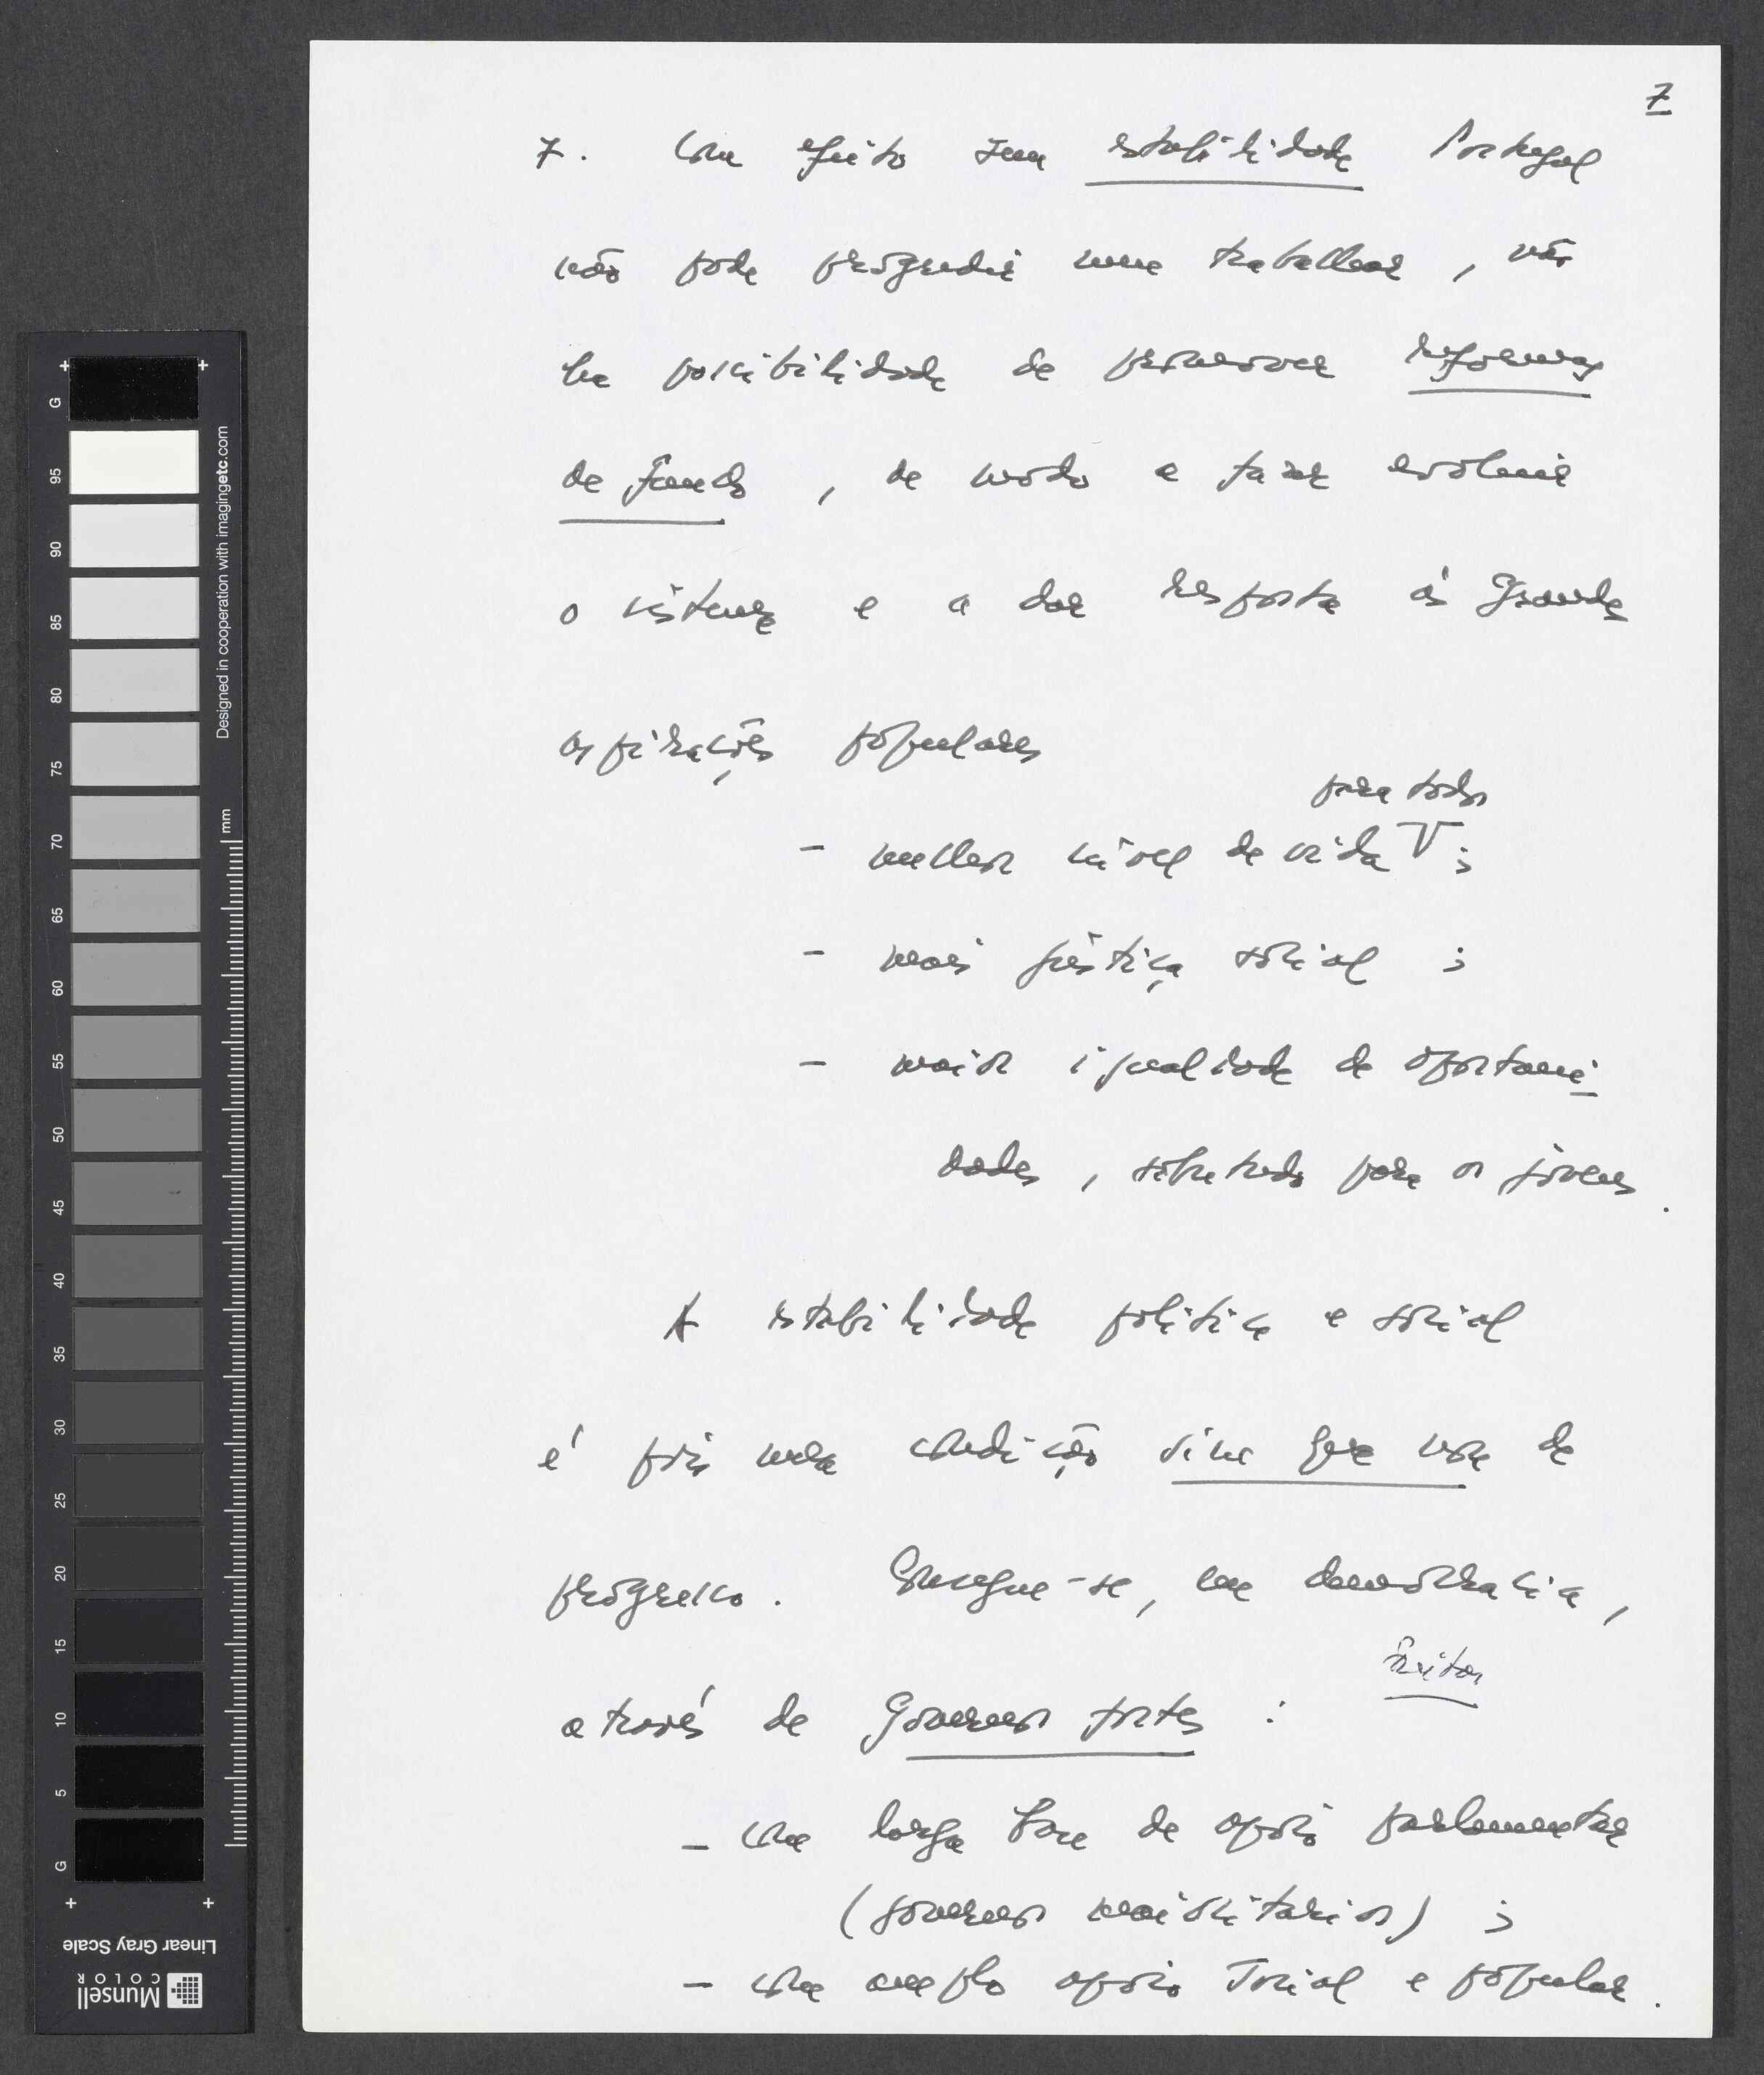 7
7. Com efeito sem estabilidade Portugal
não pode progredir nem trabalhar, não
há possibilidade de promover reformas
de fundo, de modo a fazer evoluir
o sistema e a dar resposta às grandes
aspirações populares
para todos
- melhor nível de vida V;
- mais justiça social;
- maior igualdade de oportuni
dades, sobretudo para os jovens.
A estabilidade política e social
é pois uma condição sine qua non de
progresso. Consegue-se, em democracia,
através de Governos fortes:
- com larga base de apoio parlamentar
(governos maioritários);
- com amplo apoio social e popular.
G
95
90
85
80
75
70
65
60
55
50
45
40
35
30
25
20
15
10
5
G
mm
Designed in cooperation with imagingetc.com
Linear Gray Scale
Munsell
COLOR